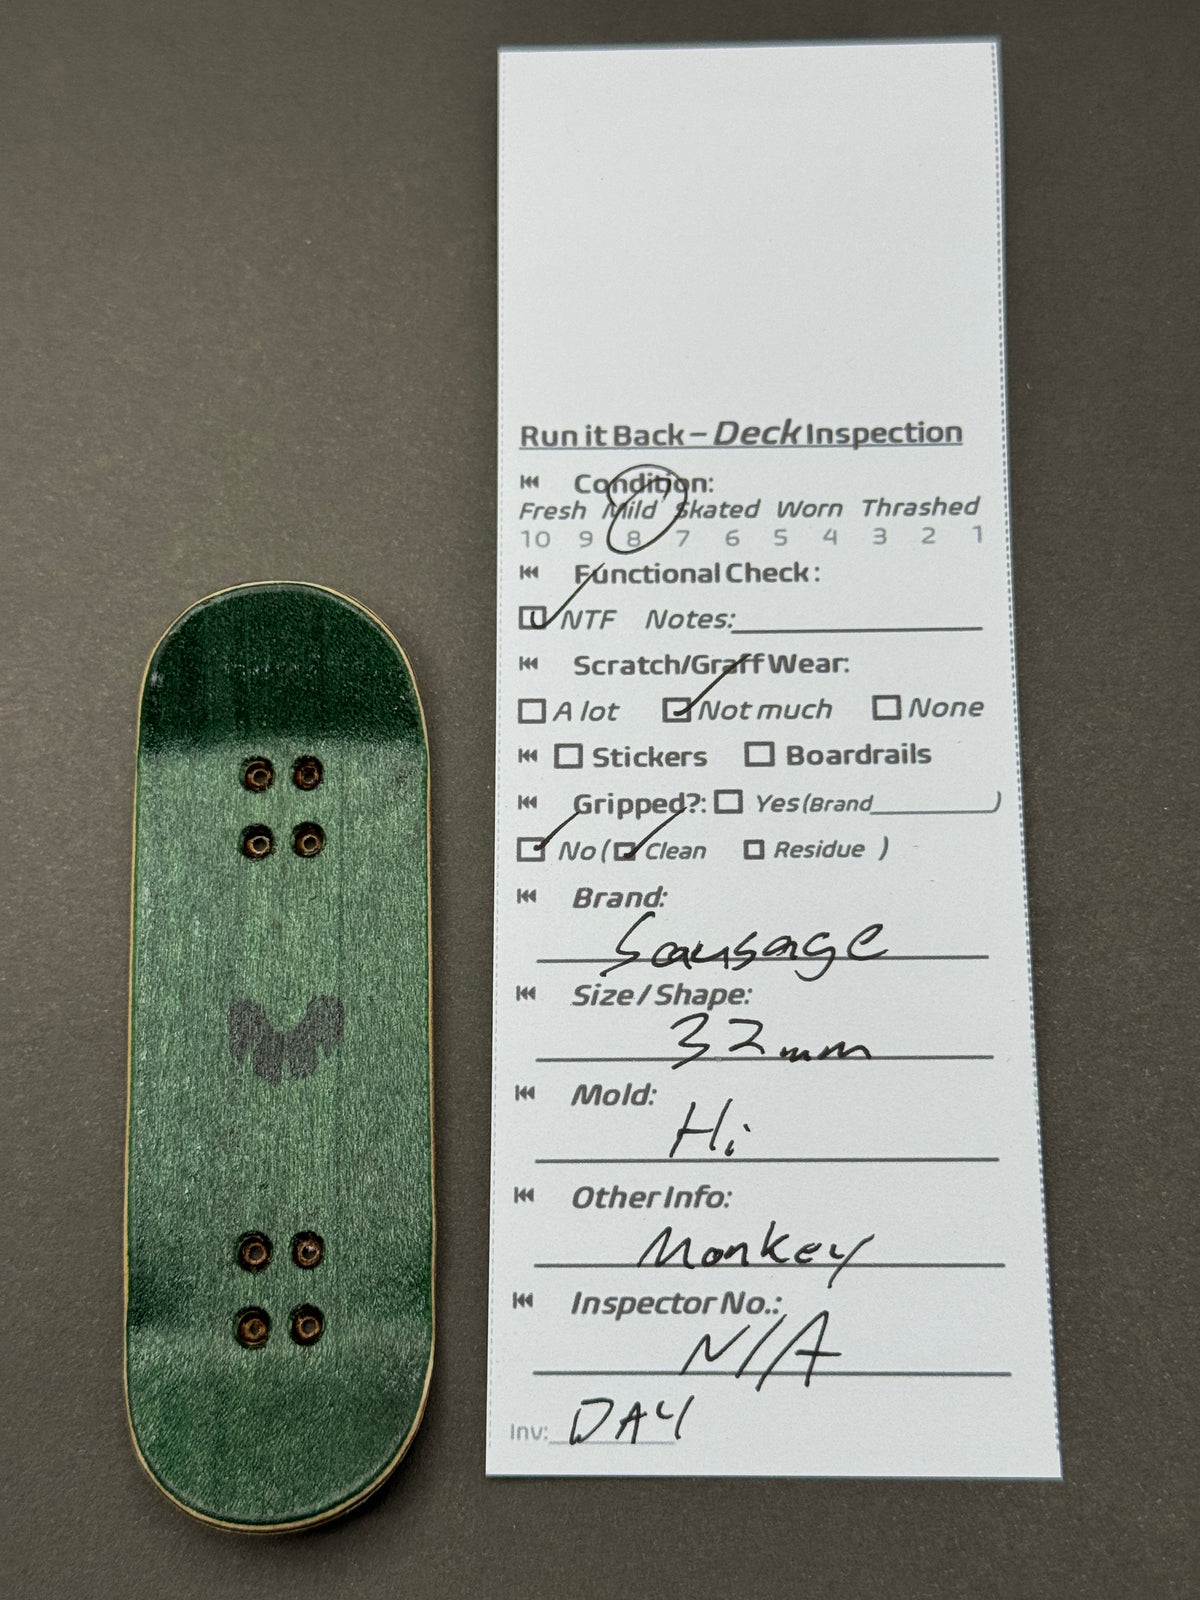 Run it Back – Deck Inspection
Condition:
Fresh Mild Skated Worn Thrashed
10 9 8 7 6 5 4 3 2 1
Functional Check:
NTF Notes:
Scratch/Graff Wear:
A lot Not much None
Stickers Boardrails
Gripped?: Yes (Brand )
No ( Clean Residue )
Brand:
Sausage
Size / Shape:
32mm
Mold:
Hi
Other Info:
Monkey
Inspector No.:
N/A
Inv: DAY